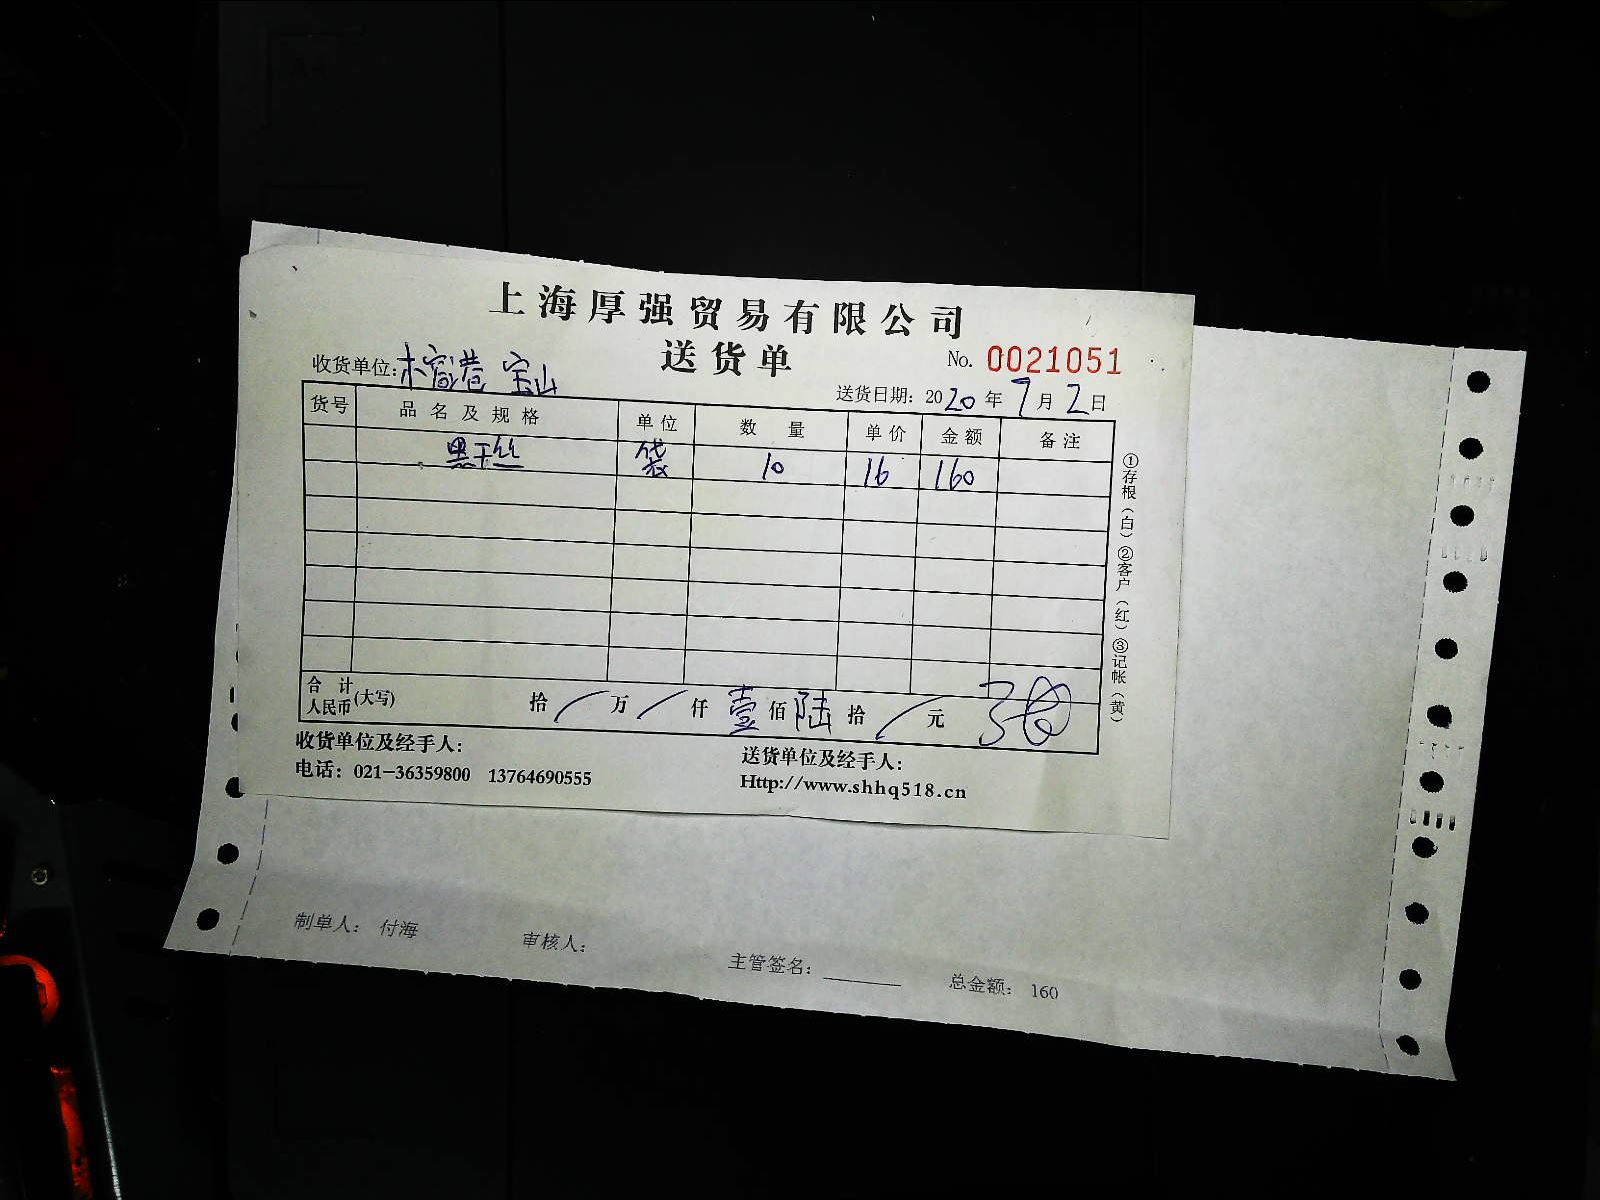 上海厚强贸易有限公司
送货单
No. 0021051
收货单位: 木窗巷 宝山
送货日期: 2020年7月2日
货号 品名及规格 单位 数量 单价 金额 备注
黑干丝 袋 10 16 160
合计人民币(大写) 拾 / 万 / 仟 壹 佰 陆 拾 / 元
①存根(白)②客户(红)③记帐(黄)
收货单位及经手人:
送货单位及经手人:
电话: 021-36359800 13764690555
Http://www.shhq518.cn
制单人: 付海 审核人: 主管签名: 总金额: 160